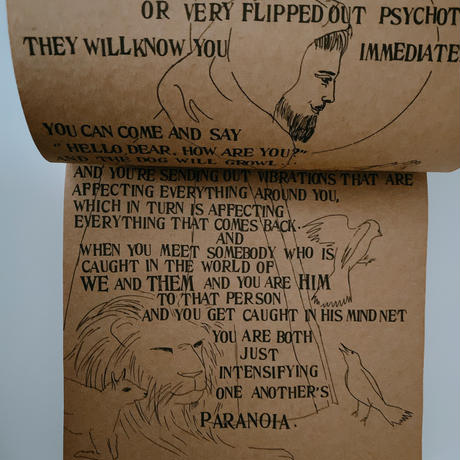 OR VERY FLIPPED OUT PSYCHOT
THEY WILL KNOW YOU IMMEDIATE
YOU CAN COME AND SAY
"HELLO, DEAR, HOW ARE YOU?"
AND THE DOG WILL GROWL...
AND YOU'RE SENDING OUT VIBRATIONS THAT ARE
AFFECTING EVERYTHING AROUND YOU,
WHICH IN TURN IS AFFECTING
EVERYTHING THAT COMES BACK.
AND
WHEN YOU MEET SOMEBODY WHO IS
CAUGHT IN THE WORLD OF
WE AND THEM AND YOU ARE HIM
TO THAT PERSON
AND YOU GET CAUGHT IN HIS MIND NET
YOU ARE BOTH
JUST
INTENSIFYING
ONE ANOTHER'S
PARANOIA.